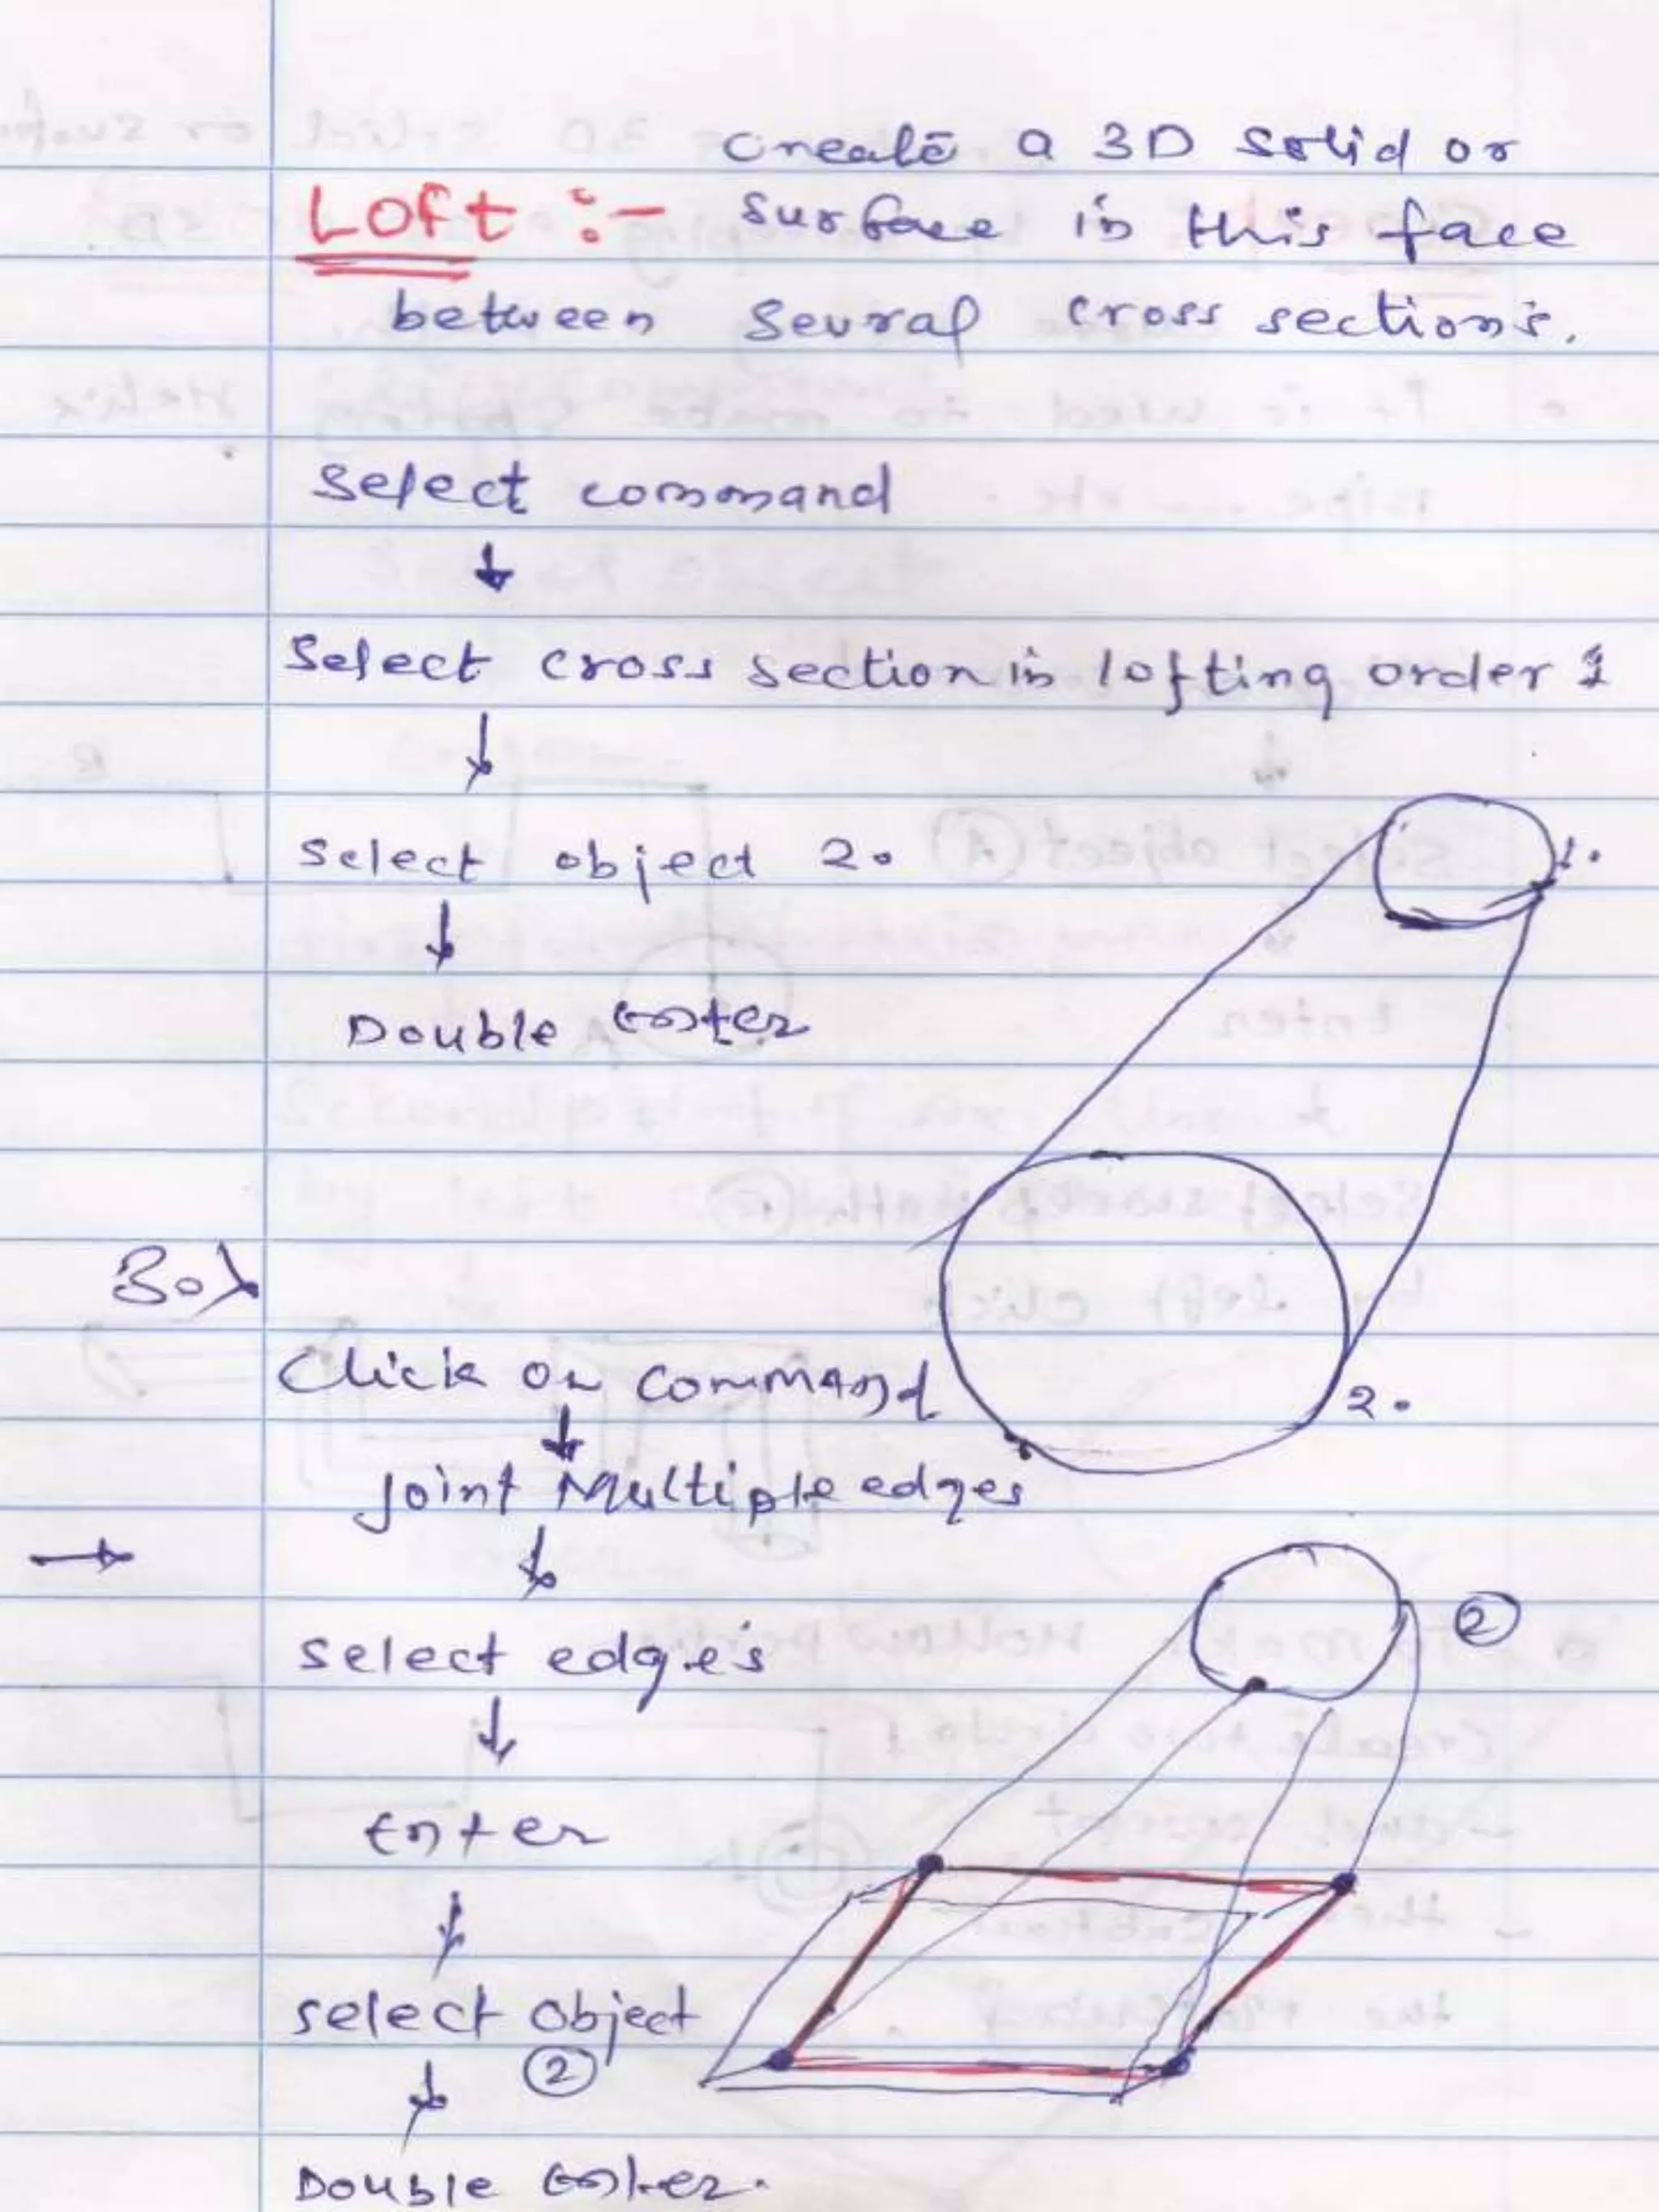 Create a 3D solid or
Loft :- surface in this face
between sevral cross section's.
Select command
↓
Select cross section in lofting order 1
↓
Select object 2.
1.
↓
Double Enter
Box
Click on command
2.
↓
Joint Multiple edges
→ ↓
select edge's
②
↓
Enter
↓
select object
②
↓
Double Enter.